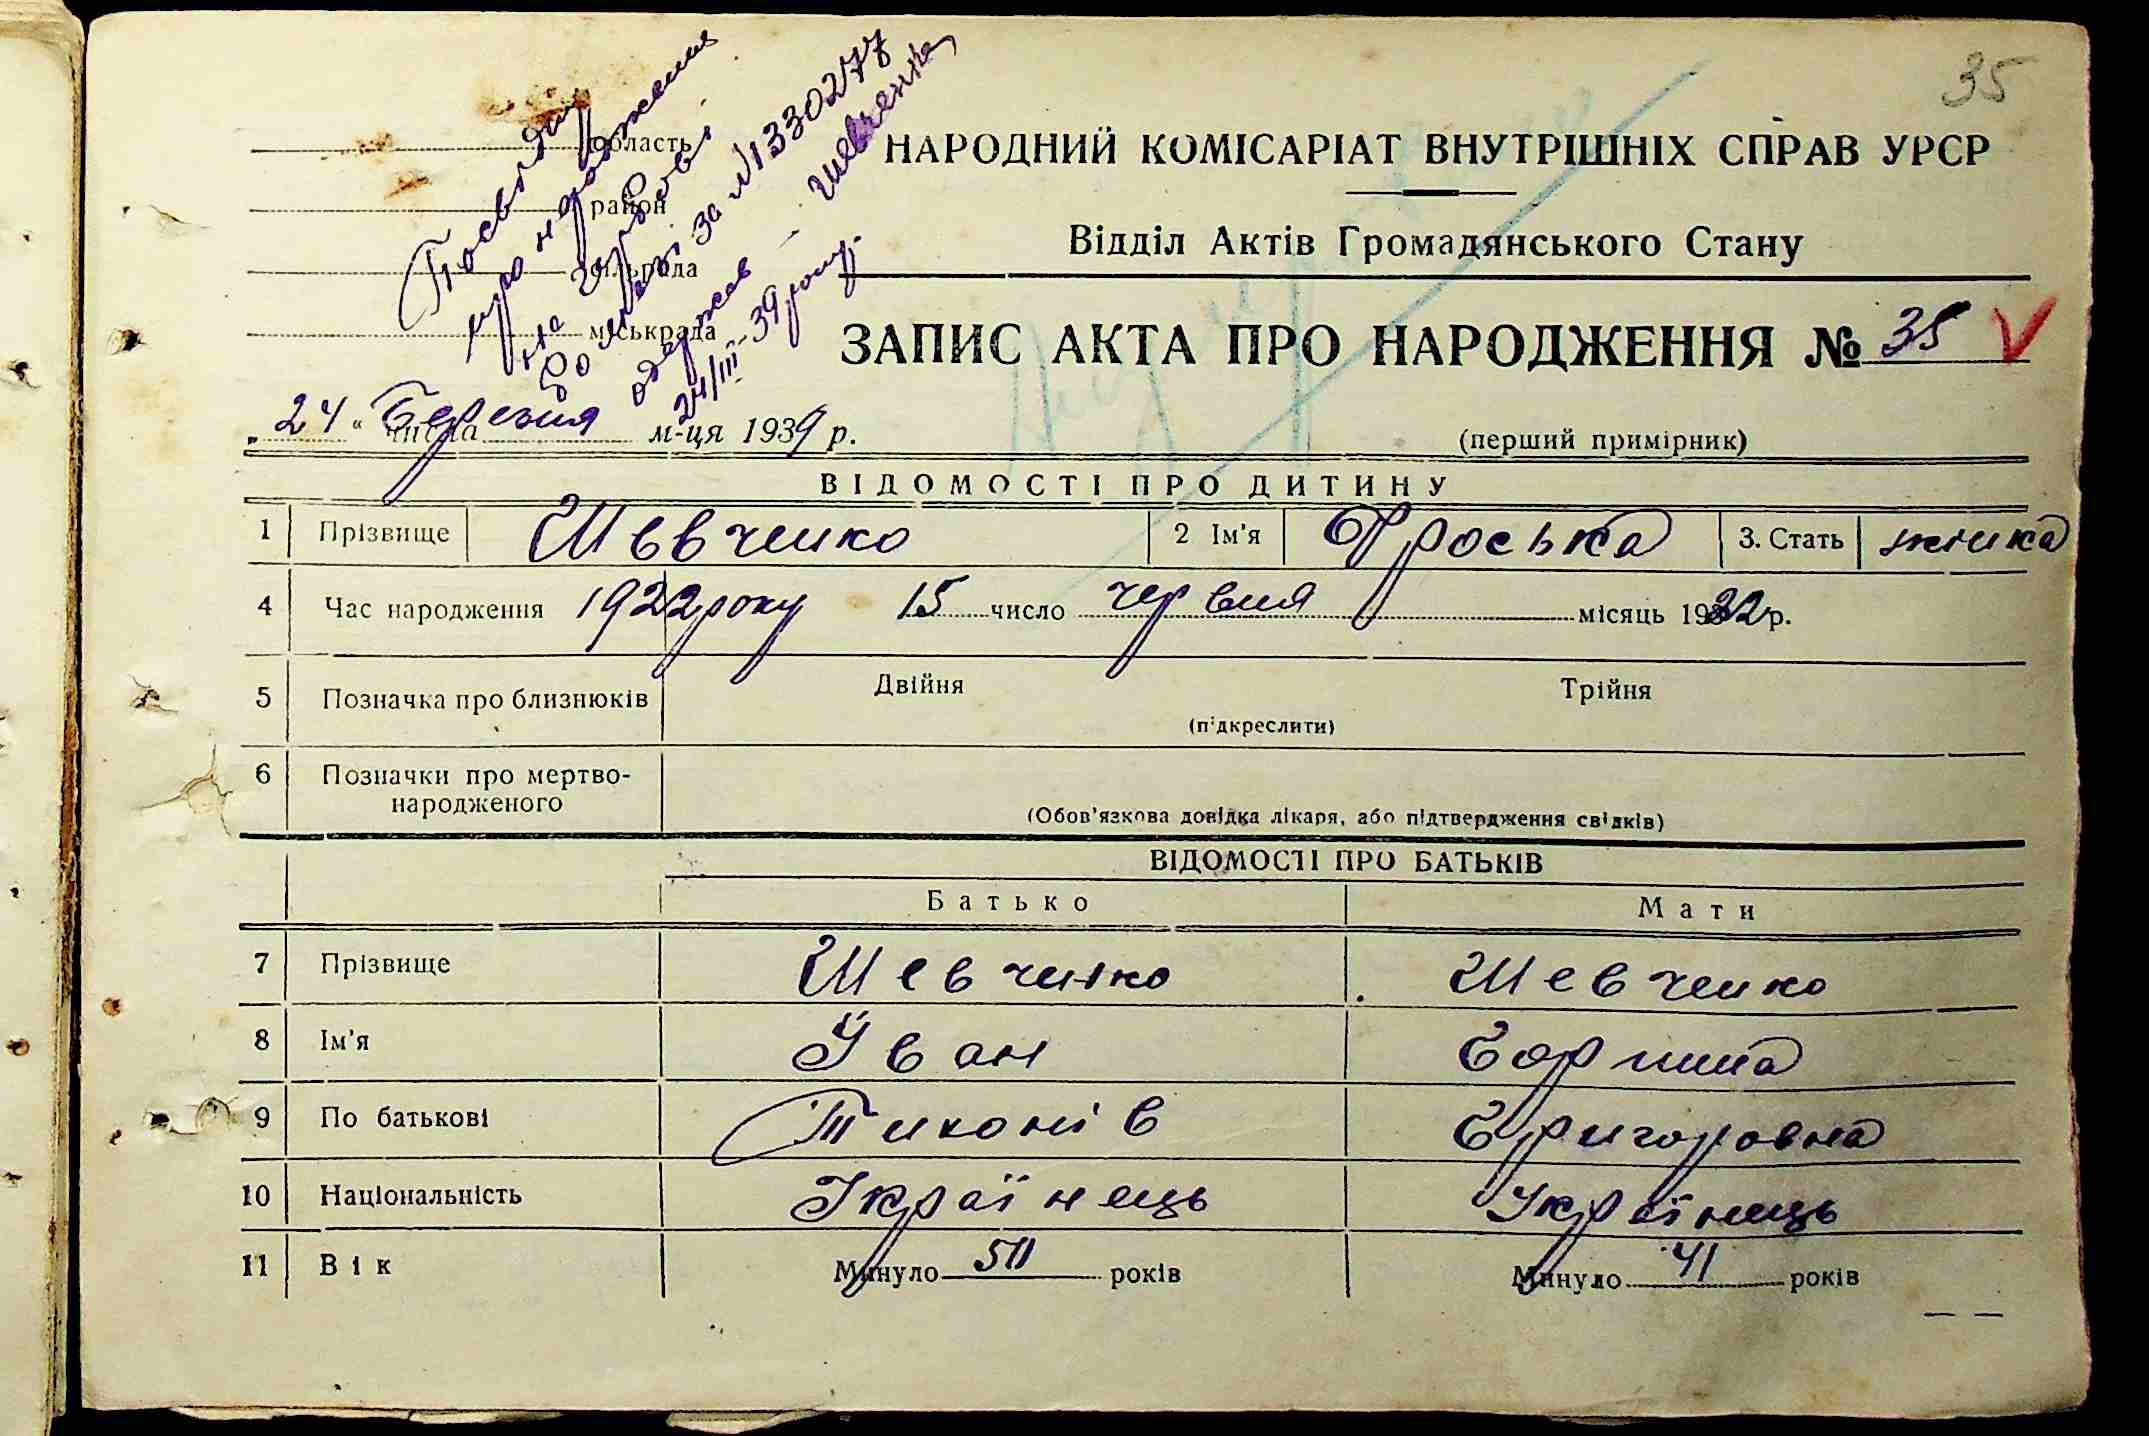 35
Посвідку
про народження
на здорові
за №1330277
одержав Шевченко
24/III 39 року.
область
район
сільрада
міськрада
НАРОДНИЙ КОМІСАРІАТ ВНУТРІШНІХ СПРАВ УРСР
Відділ Актів Громадянського Стану
ЗАПИС АКТА ПРО НАРОДЖЕННЯ № 35 V
„24“ числа Березня м-ця 1939 р.
(перший примірник)
ВІДОМОСТІ ПРО ДИТИНУ
1 Прізвище Шевченко 2 Ім'я Фроська 3. Стать жінка
4 Час народження 1922 року 15 число червня місяць 1922 р.
5 Позначка про близнюків Двійня Трійня
(підкреслити)
6 Позначки про мертво-
народженого
(Обов'язкова довідка лікаря, або підтвердження свідків)
ВІДОМОСТІ ПРО БАТЬКІВ
Батько Мати
7 Прізвище Шевченко Шевченко
8 Ім'я Іван Горпина
9 По батькові Тихонів Григоровна
10 Національність Українець Українець
11 Вік Минуло 50 років Минуло 41 років